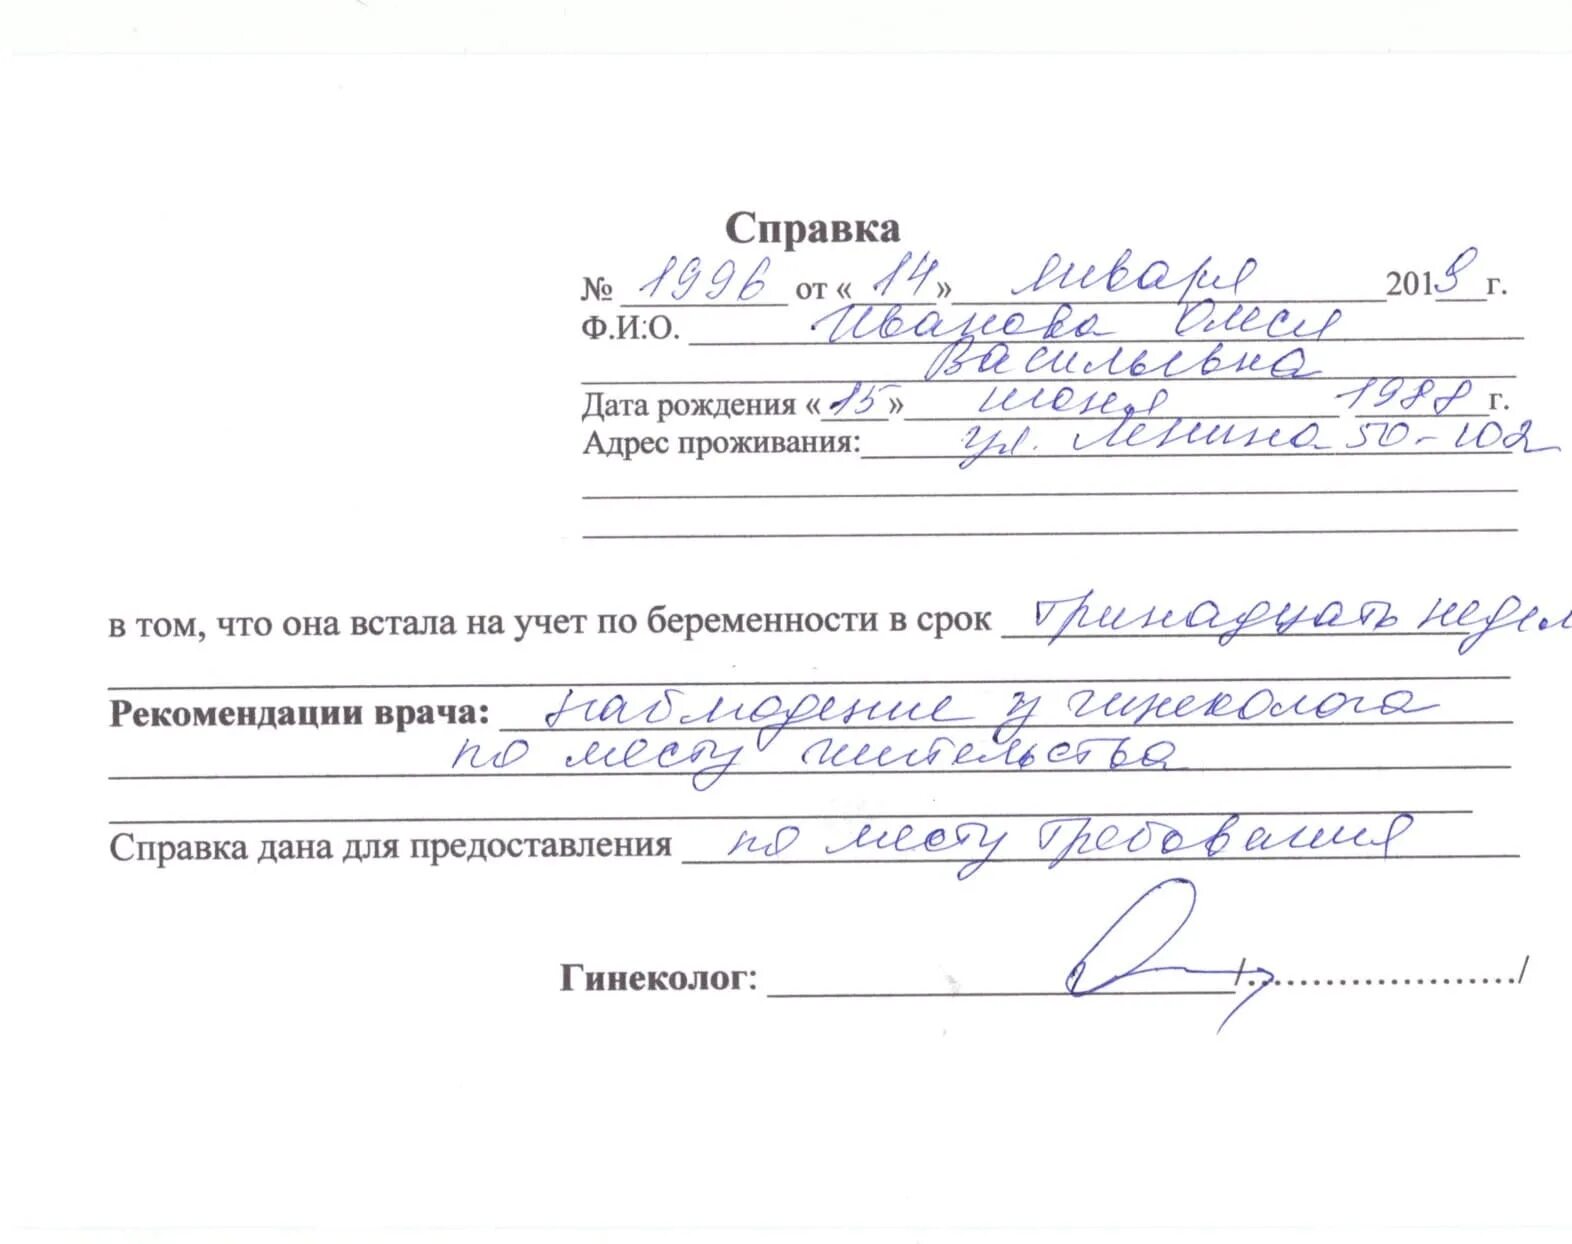 Справка
№ 1996 от «14» января 2019 г.
Ф.И.О. Иванова Олеся
Васильевна
Дата рождения «15» июня 1988 г.
Адрес проживания: ул. Ленина 50-102
в том, что она встала на учет по беременности в срок тринадцать недел
Рекомендации врача: наблюдение у гинеколога
по месту жительства
Справка дана для предоставления по месту требования
Гинеколог: /..................../